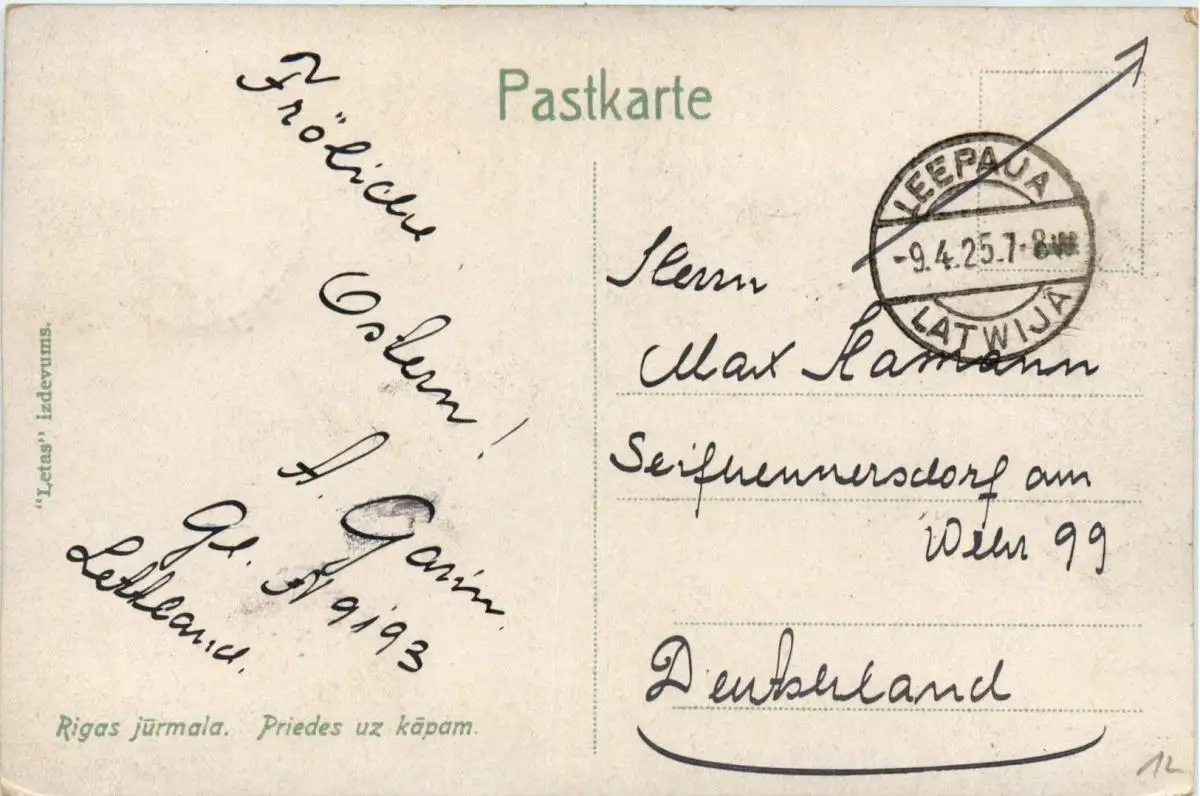 Pastkarte
Fröliche
Ostern!
A. Garin.
Gl. N 9193
Lettland.
"Letas" izdevums.
Rigas jūrmala. Priedes uz kāpām.
LEEPAJA
-9.4.25.7-8
LATWIJĀ
Herrn
Max Hamann
Seifhennersdorf am
Wehr 99
Deutschland
12